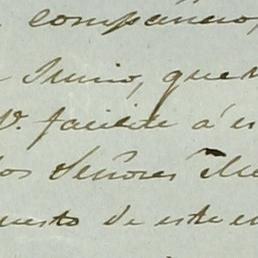 compañero,
Junio, que
V. facilite á
los Señores
uesto de este